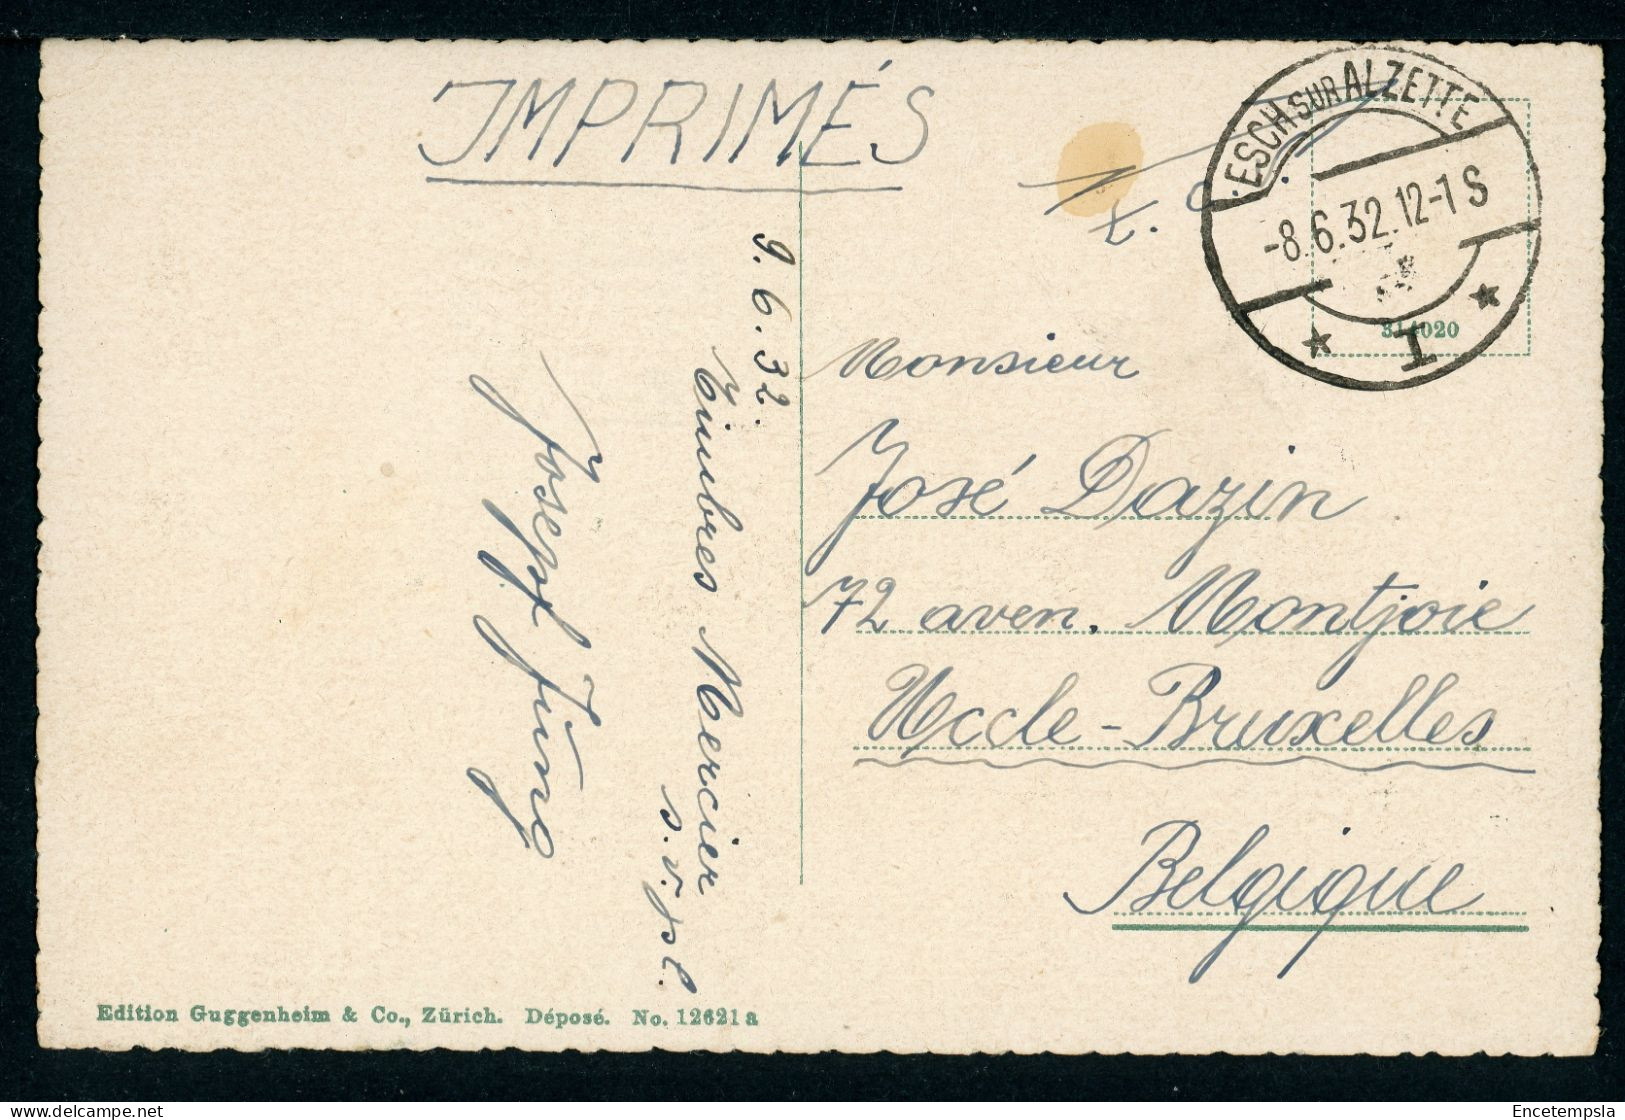 IMPRIMÉS
ESCH-SUR ALZETTE
-8.6.32.12-1 S
I
314020
9.6.32.
Timbres Mercier
s.v.pl.
Joseph Jung
Monsieur
José Dazin
72 aven. Montjoie
Uccle-Bruxelles
Belgique
Edition Guggenheim & Co., Zürich. Déposé. No. 12621a
Encetempsla